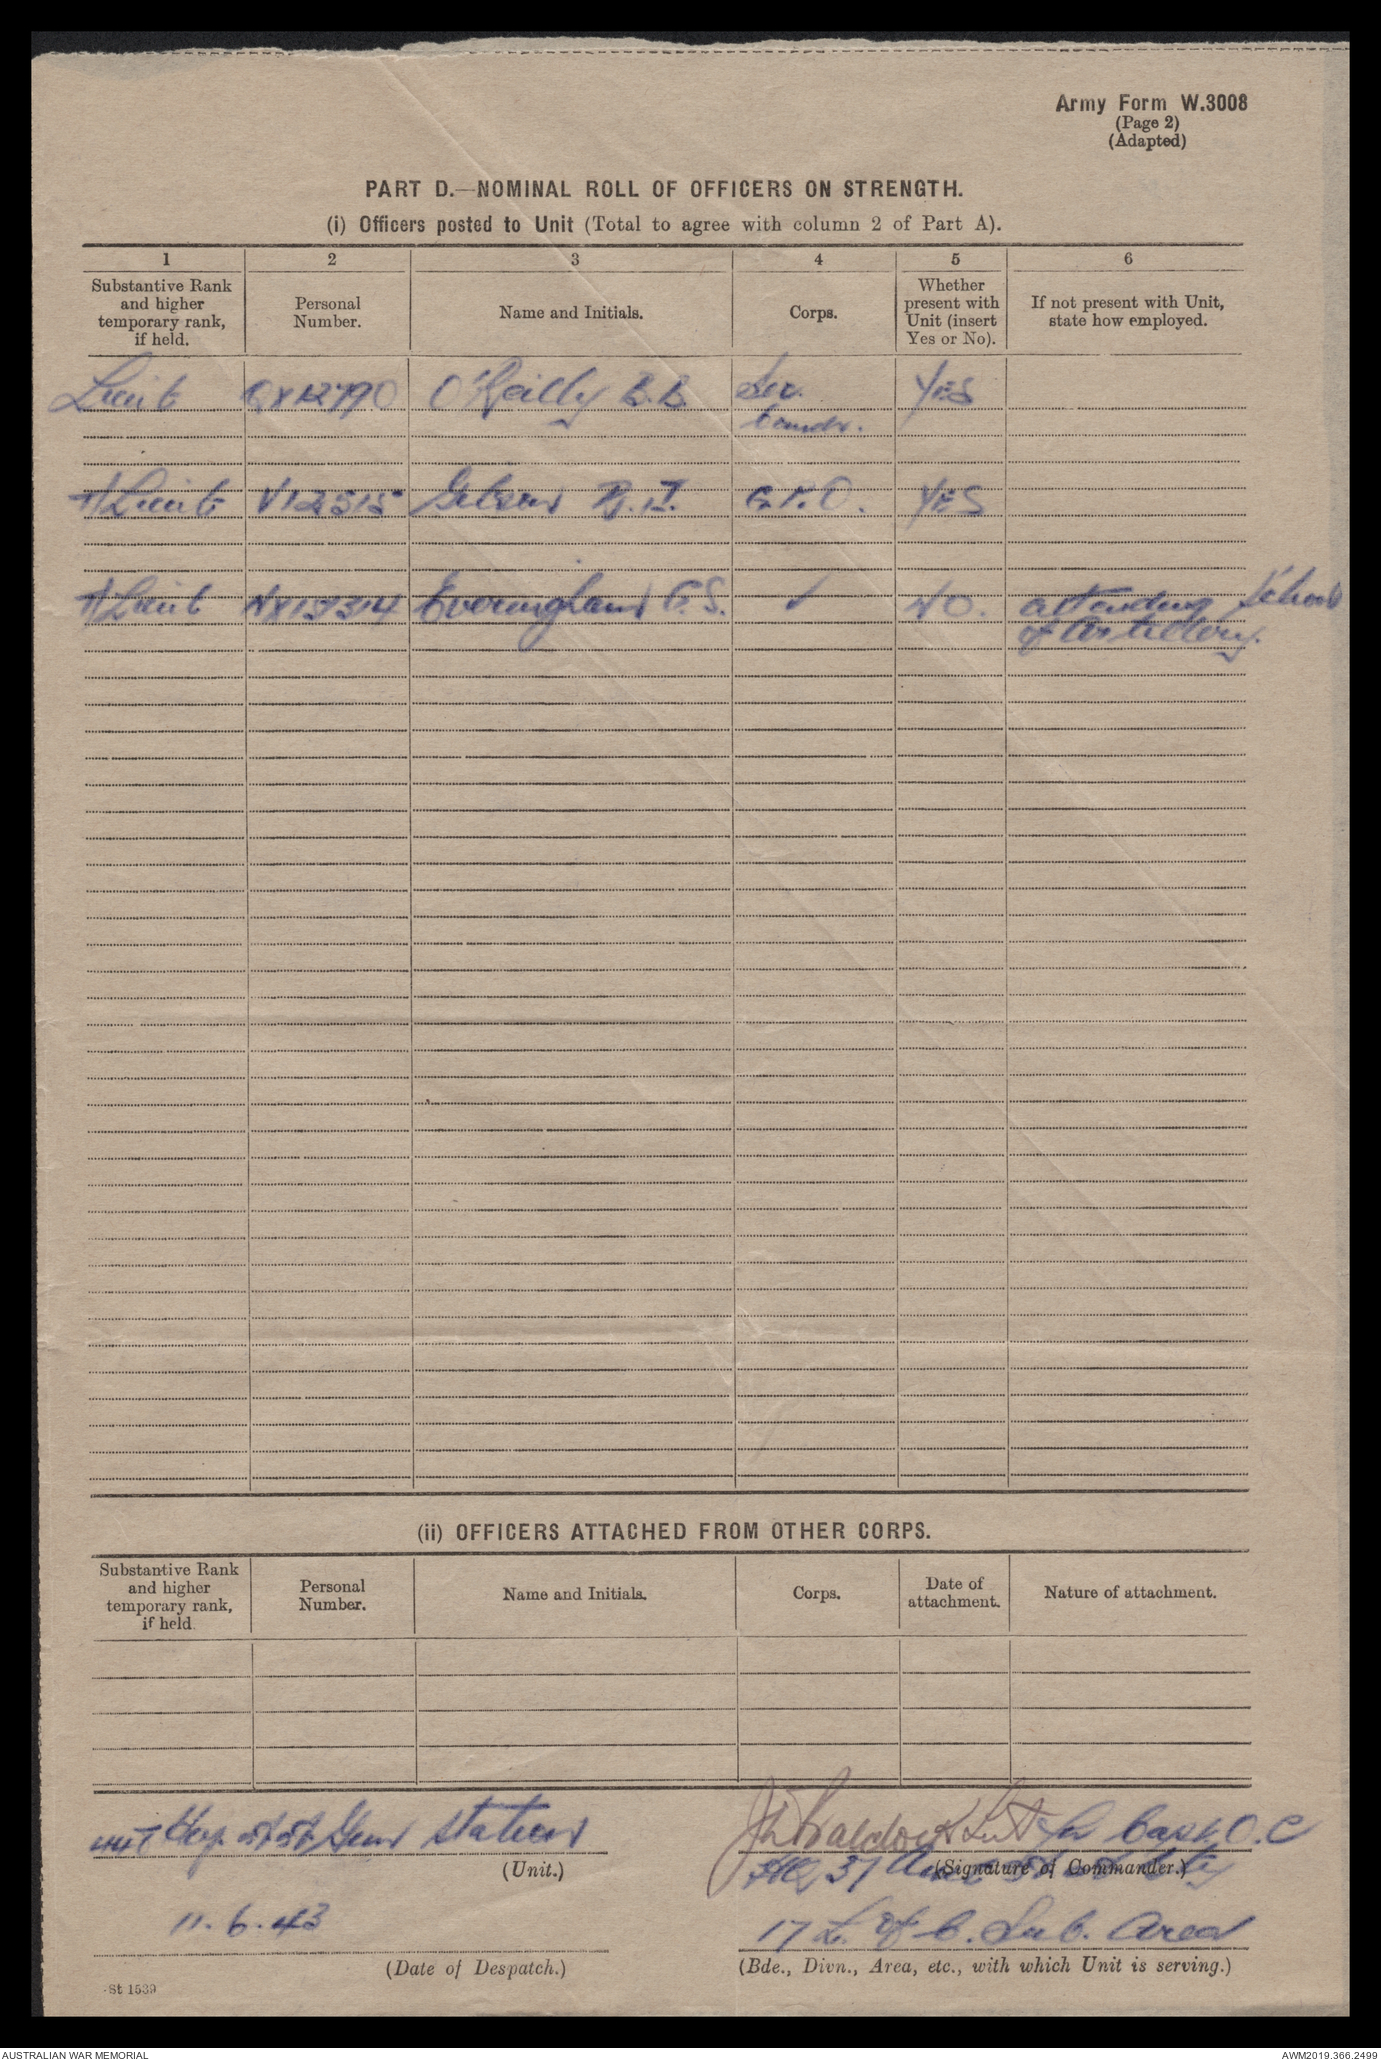 Army Form W.3008
(Page 2)
(Adapted)
PART D.—NOMINAL ROLL OF OFFICERS ON STRENGTH.
(i) Officers posted to Unit (Total to agree with column 2 of Part A).
1 2 3 4 5 6
Substantive Rank and higher temporary rank, if held.
Personal Number.
Name and Initials.
Corps.
Whether present with Unit (insert Yes or No).
If not present with Unit, state how employed.
Lieut O'Reilly B.B. Sec. YES
Comdr.
T/Lieut V12515 Gibson R.J. G.P.O. YES
T/Lieut Everingham G.S. ✓ NO. attending School
of Artillery.
(ii) OFFICERS ATTACHED FROM OTHER CORPS.
Substantive Rank and higher temporary rank, if held
Personal Number.
Name and Initials.
Corps.
Date of attachment.
Nature of attachment.
Gun Station
(Unit.)
Lieut for Capt O.C
(Signature of Commander.)
11.6.43
(Date of Despatch.)
17 L. of C. Sub. Area
(Bde., Divn., Area, etc., with which Unit is serving.)
St 1539
AUSTRALIAN WAR MEMORIAL
AWM2019.366.2499